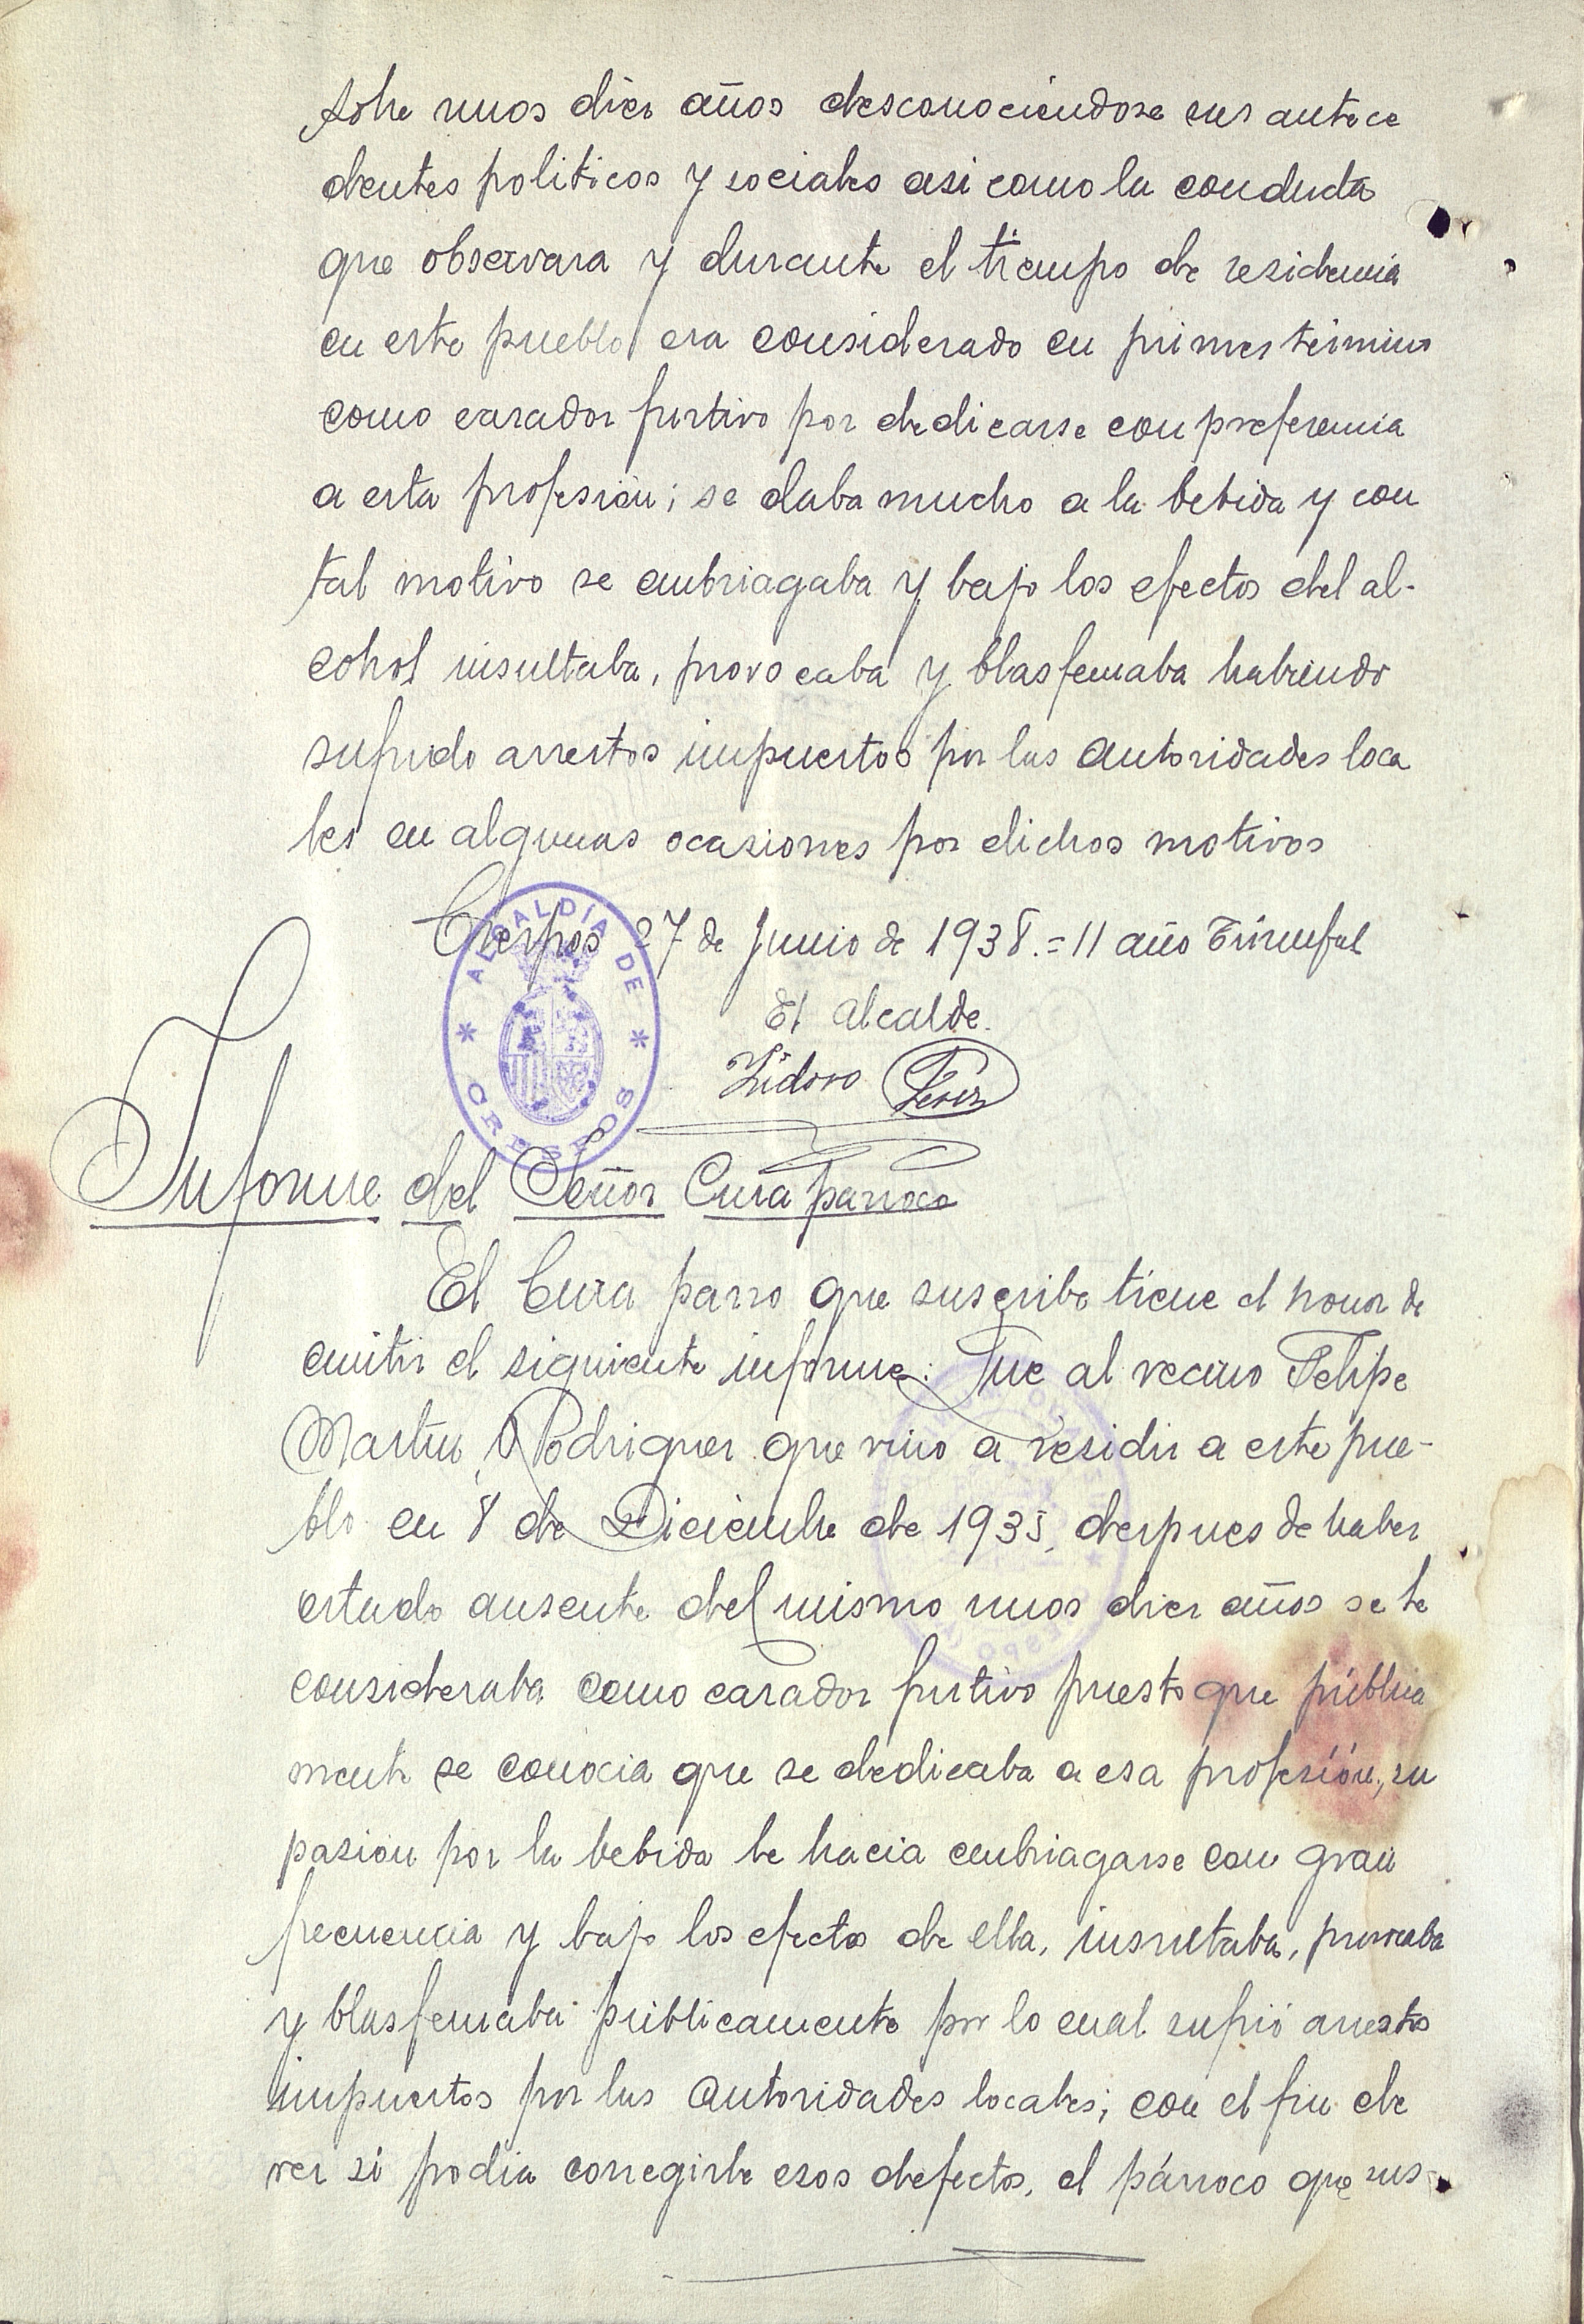 sobre unos diez años desconociendose sus antece
dentes politicos y sociales asi como la conducta
que observara y durante el tiempo de residencia
en este pueblo era considerado en primer término
como cazador furtivo por dedicarse con preferencia
a esta profesión; se daba mucho a la bebida y con
tal motivo se embriagaba y bajo los efectos del al-
cohol insultaba, provocaba y blasfemaba habiendo
sufrido arrestos impuestos por las autoridades loca
les en algunas ocasiones por dichos motivos
Crespos 27 de Junio de 1938.= II año Triunfal
ALCALDÍA DE
* CRESPOS *
El Alcalde.
Isidoro Perez
Informe del Señor Cura parroco
El Cura parro que suscribe tiene el honor de
emitir el siguiente informe: Que al vecino Felipe
Martin Rodriguez que vino a residir a este pue-
blo en 8 de Diciembre de 1935, despues de haber
estado ausente del mismo unos diez años se le
consideraba como cazador furtivo puesto que pública
mente se conocia que se dedicaba a esa profesión, su
pasion por la bebida le hacia embriagarse con gran
frecuencia y bajo los efectos de ella, insultaba, provocaba
y blasfemaba públicamente por lo cual sufrió arrestos
impuestos por las autoridades locales; con el fin de
ver si podia corregirle esos defectos, el párroco que sus-